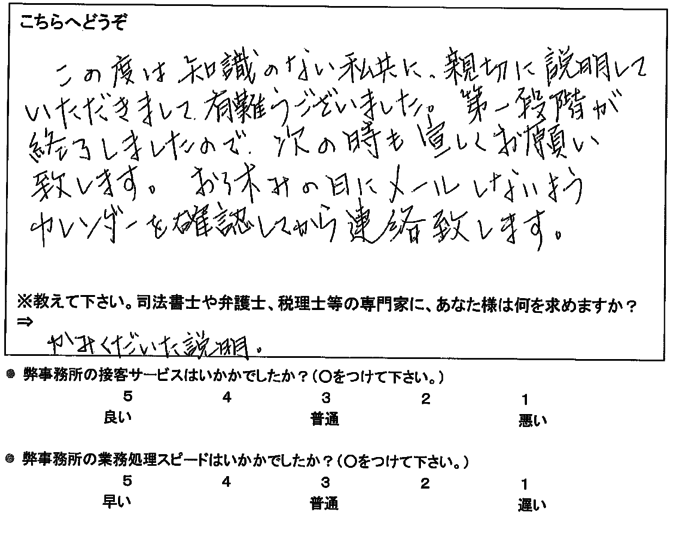 こちらへどうぞ
この度は知識のない私共に、親切に説明して
いただきまして、有難うございました。第一段階が
終了しましたので、次の時も宜しくお願い
致します。お休みの日にメールしないよう
カレンダーを確認してから連絡致します。
※教えて下さい。司法書士や弁護士、税理士等の専門家に、あなた様は何を求めますか？
⇒
かみくだいた説明。
● 弊事務所の接客サービスはいかかでしたか？（○をつけて下さい。）
5 4 3 2 1
良い 普通 悪い
● 弊事務所の業務処理スピードはいかかでしたか？（○をつけて下さい。）
5 4 3 2 1
早い 普通 遅い